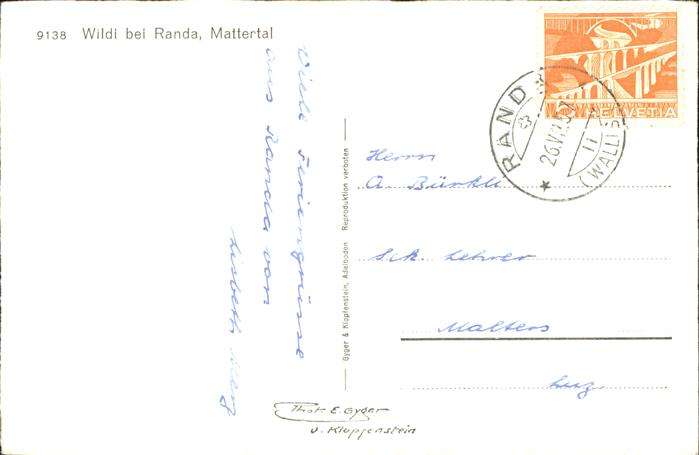 9138 Wildi bei Randa, Mattertal
HELVETIA
RANDA
26.VII.5
11
(WALLIS)
Viele Feriengrüsse
aus Randa von
Lisbeth
Herrn
A. Bürkli
Sek. Lehrer
Malters
Luz.
Gyger & Klopfenstein, Adelboden Reproduktion verboten
Phot E. Gyger
u. Klopfenstein